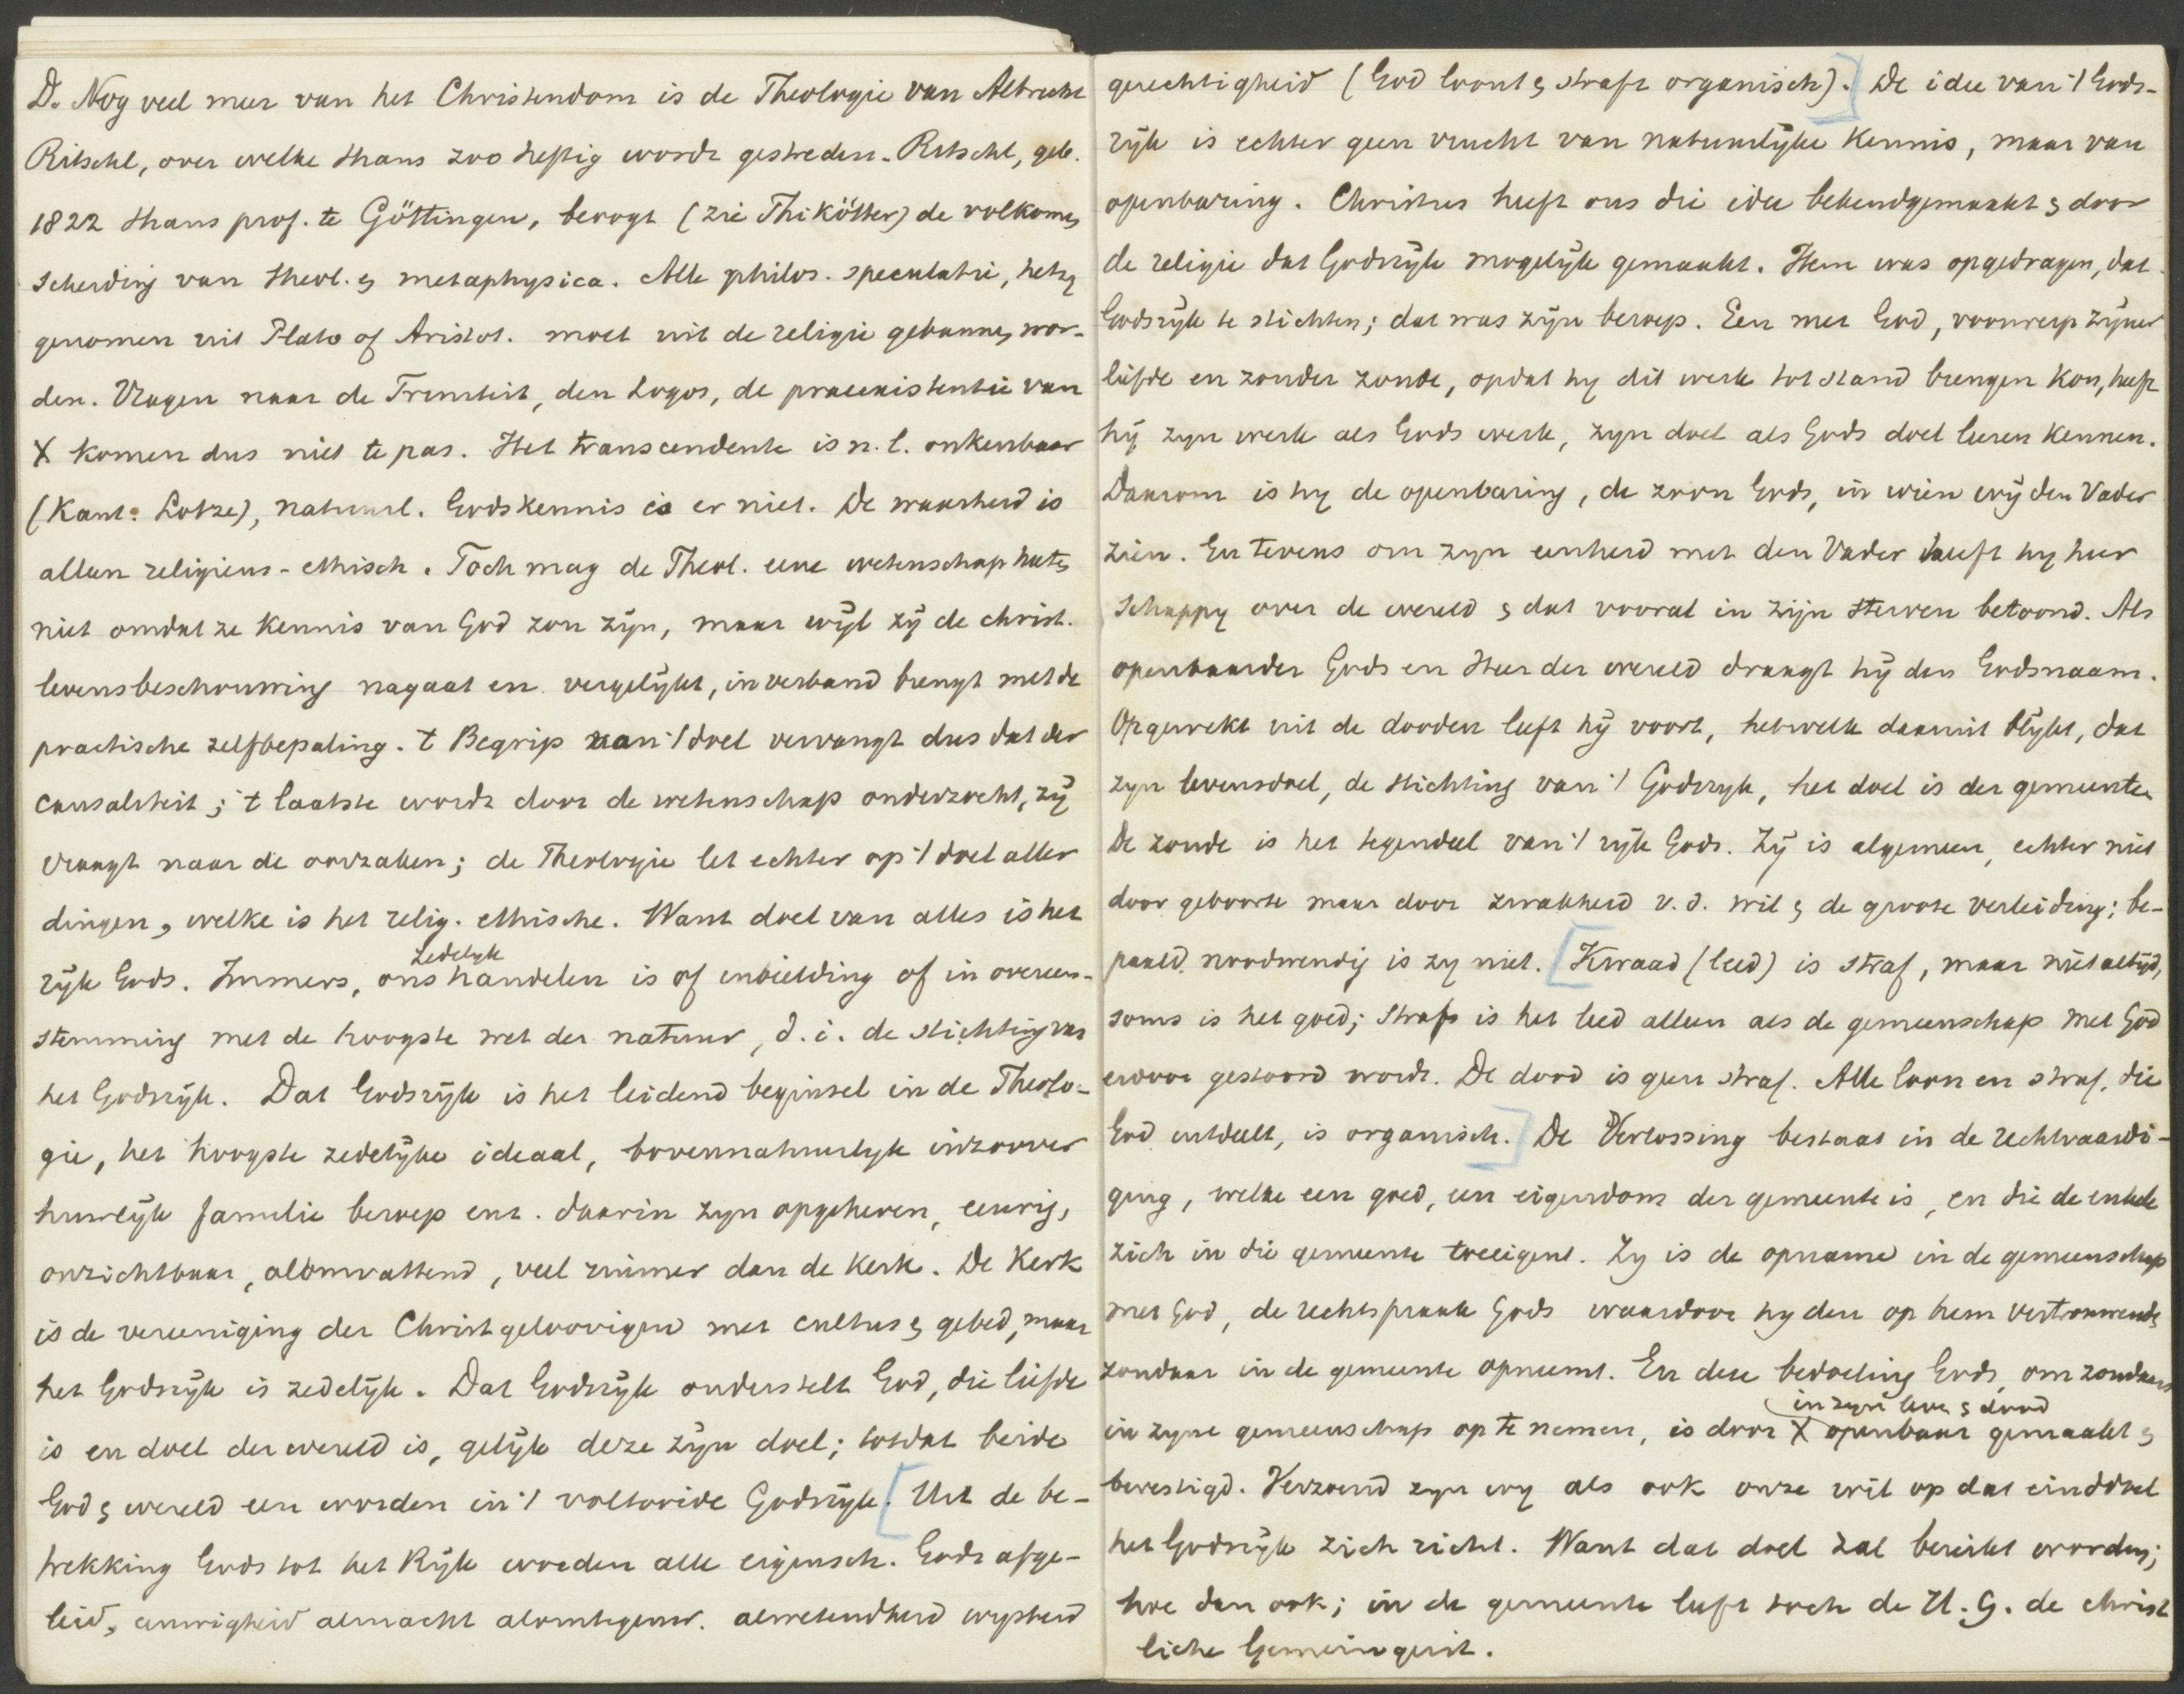 D. Nog veel meer van het Christendom is de Theologie van Albrecht
Ritschl, over welke thans zoo heftig wordt gestreden. Ritschl, geb.
1822 thans prof. te Göttingen, beoogt (zie Thikötter) de volkomen
scheiding van theol. en metaphysica. Alle philos. speculatie, hetzy
genomen uit Plato of Aristot. moet uit de religie gebannen wor-
den. Vragen naar de Triniteit, den Logos, de praeexistentie van
X komen dus niet te pas. Het transcendente is n.l. onkenbaar
(Kant: Lotze), natuurl. Godskennis is er niet. De waarheid is
alleen religieus-ethisch. Toch mag de Theol. eene wetenschap heeten
niet omdat ze kennis van God zou zijn, maar wijl zij de christ.
levensbeschouwing nagaat en vergelijkt, in verband brengt met de
practische zelfbepaling. 't Begrip van 't doel vervangt dus dat der
causaliteit; 't laatste wordt door de wetenschap onderzocht, zij
vraagt naar de oorzaken; de Theologie let echter op 't doel aller
dingen, welke is het relig. ethische. Want doel van alles is het
rijk Gods. Immers, ons zedelyk handelen is of inbeelding of in overeen-
stemming met de hoogste wet der natuur, d.i. de stichting van
het Godsrijk. Dat Godsrijk is het leidend beginsel in de Theolo-
gie, het hoogste zedelijke ideaal, bovennatuurlyk inzoover
huwelijk familie beroep enz. daarin zyn opgeheven, eeuwig,
onzichtbaar, alomvattend, veel ruimer dan de kerk. De Kerk
is de vereeniging der Christgeloovigen met cultus en gebed, maar
het Godsrijk is zedelijk. Dat Godsrijk onderstelt God, die liefde
is en doel der wereld is, gelijk deze zijn doel; totdat beide
God en wereld een worden in 't voltooide Godsrijk. [Uit de be-
trekking Gods tot het Rijk worden alle eigensch. Gods afge-
leid, eeuwigheid almacht alomtegenw. alwetendheid wysheid
gerechtigheid (God loont en straft organisch).] De idee van 't Gods-
rijk is echter geen vrucht van natuurlijke kennis, maar van
openbaring. Christus heeft ons die idee bekendgemaakt en door
de religie dat Godsrijk mogelijk gemaakt. Hem was opgedragen, dat
Godsrijk te stichten; dat was zijn beroep. Een met God, voorwerp zijner
liefde en zonder zonde, opdat hy dit werk tot stand brengen kon, heeft
hij zyn werk als Gods werk, zyn doel als Gods doel leeren kennen.
Daarom is hy de openbaring, de zoon Gods, in wien wij den Vader
zien. En tevens om zyn eenheid met den Vader heeft hy heer
schappy over de wereld en dat vooral in zijn sterven betoond. Als
openbaarder Gods en Heer der wereld draagt hij den Godsnaam.
Opgewekt uit de dooden leeft hij voort, hetwelk daaruit blijkt, dat
zyn levensdoel, de stichting van 't Godsryk, het doel is der gemeente.
De zonde is het tegendeel van 't rijk Gods. Zij is algemeen, echter niet
door geboorte maar door zwakheid v.d. wil en de groote verleiding; be-
paald noodwendig is zy niet. [Kwaad (leed) is straf, maar niet altijd,
soms is het goed; straf is het leed alleen als de gemeenschap met God
ervoor gestoord wordt. De dood is geen straf. Alle loon en straf, die
God uitdeelt, is organisch.] De Verlossing bestaat in de rechtvaardi-
ging, welke een goed, een eigendom der gemeente is, en die de enkele
zich in die gemeente toeeigent. Zy is de opname in de gemeenschap
met God, de rechtspraak Gods waardoor hy den op hem vertrouwende
zondaar in de gemeente opneemt. En deze bedoeling Gods om zondaars
in zyne gemeenschap op te nemen, is door X in zyn leven en dood openbaar gemaakt en
bevestigd. Verzoend zyn wy als ook onze wil op dat einddoel
het Godsrijk zich richt. Want dat doel zal bereikt worden;
hoe dan ook; in de gemeente leeft toch de H.G. de christ
liche Gemeingeist.